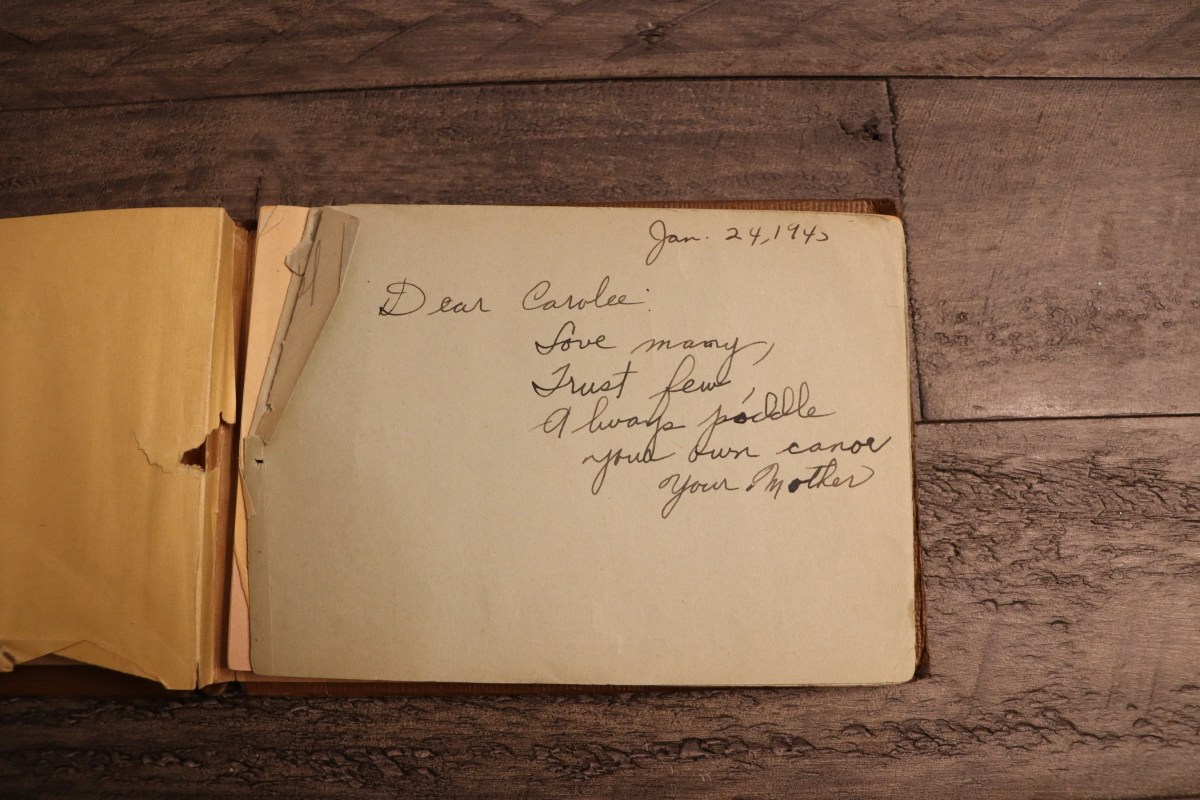 Jan. 24, 1945
Dear Carolee:
Love many,
Trust few,
Always paddle
your own canoe
Your Mother